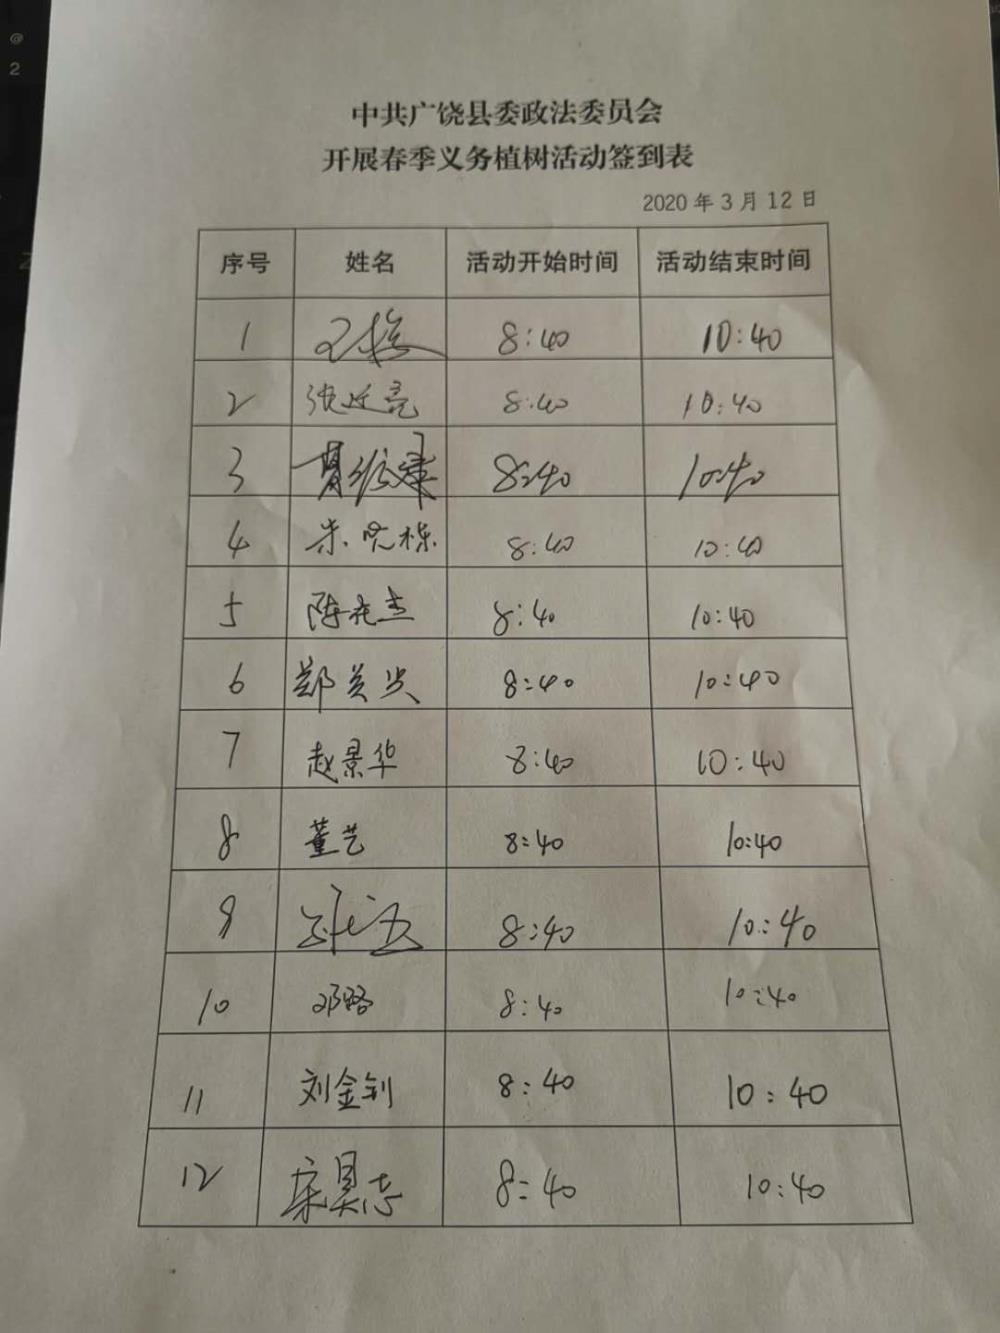 中共广饶县委政法委员会
开展春季义务植树活动签到表
2020年3月12日
序号 姓名 活动开始时间 活动结束时间
1 8:40 10:40
2 8:40 10:40
3 8:40 10:40
4 8:40 10:40
5 8:40 10:40
6 8:40 10:40
7 赵景华 8:40 10:40
8 董艺 8:40 10:40
9 8:40 10:40
10 邓路 8:40 10:40
11 刘金钊 8:40 10:40
12 宋昊志 8:40 10:40